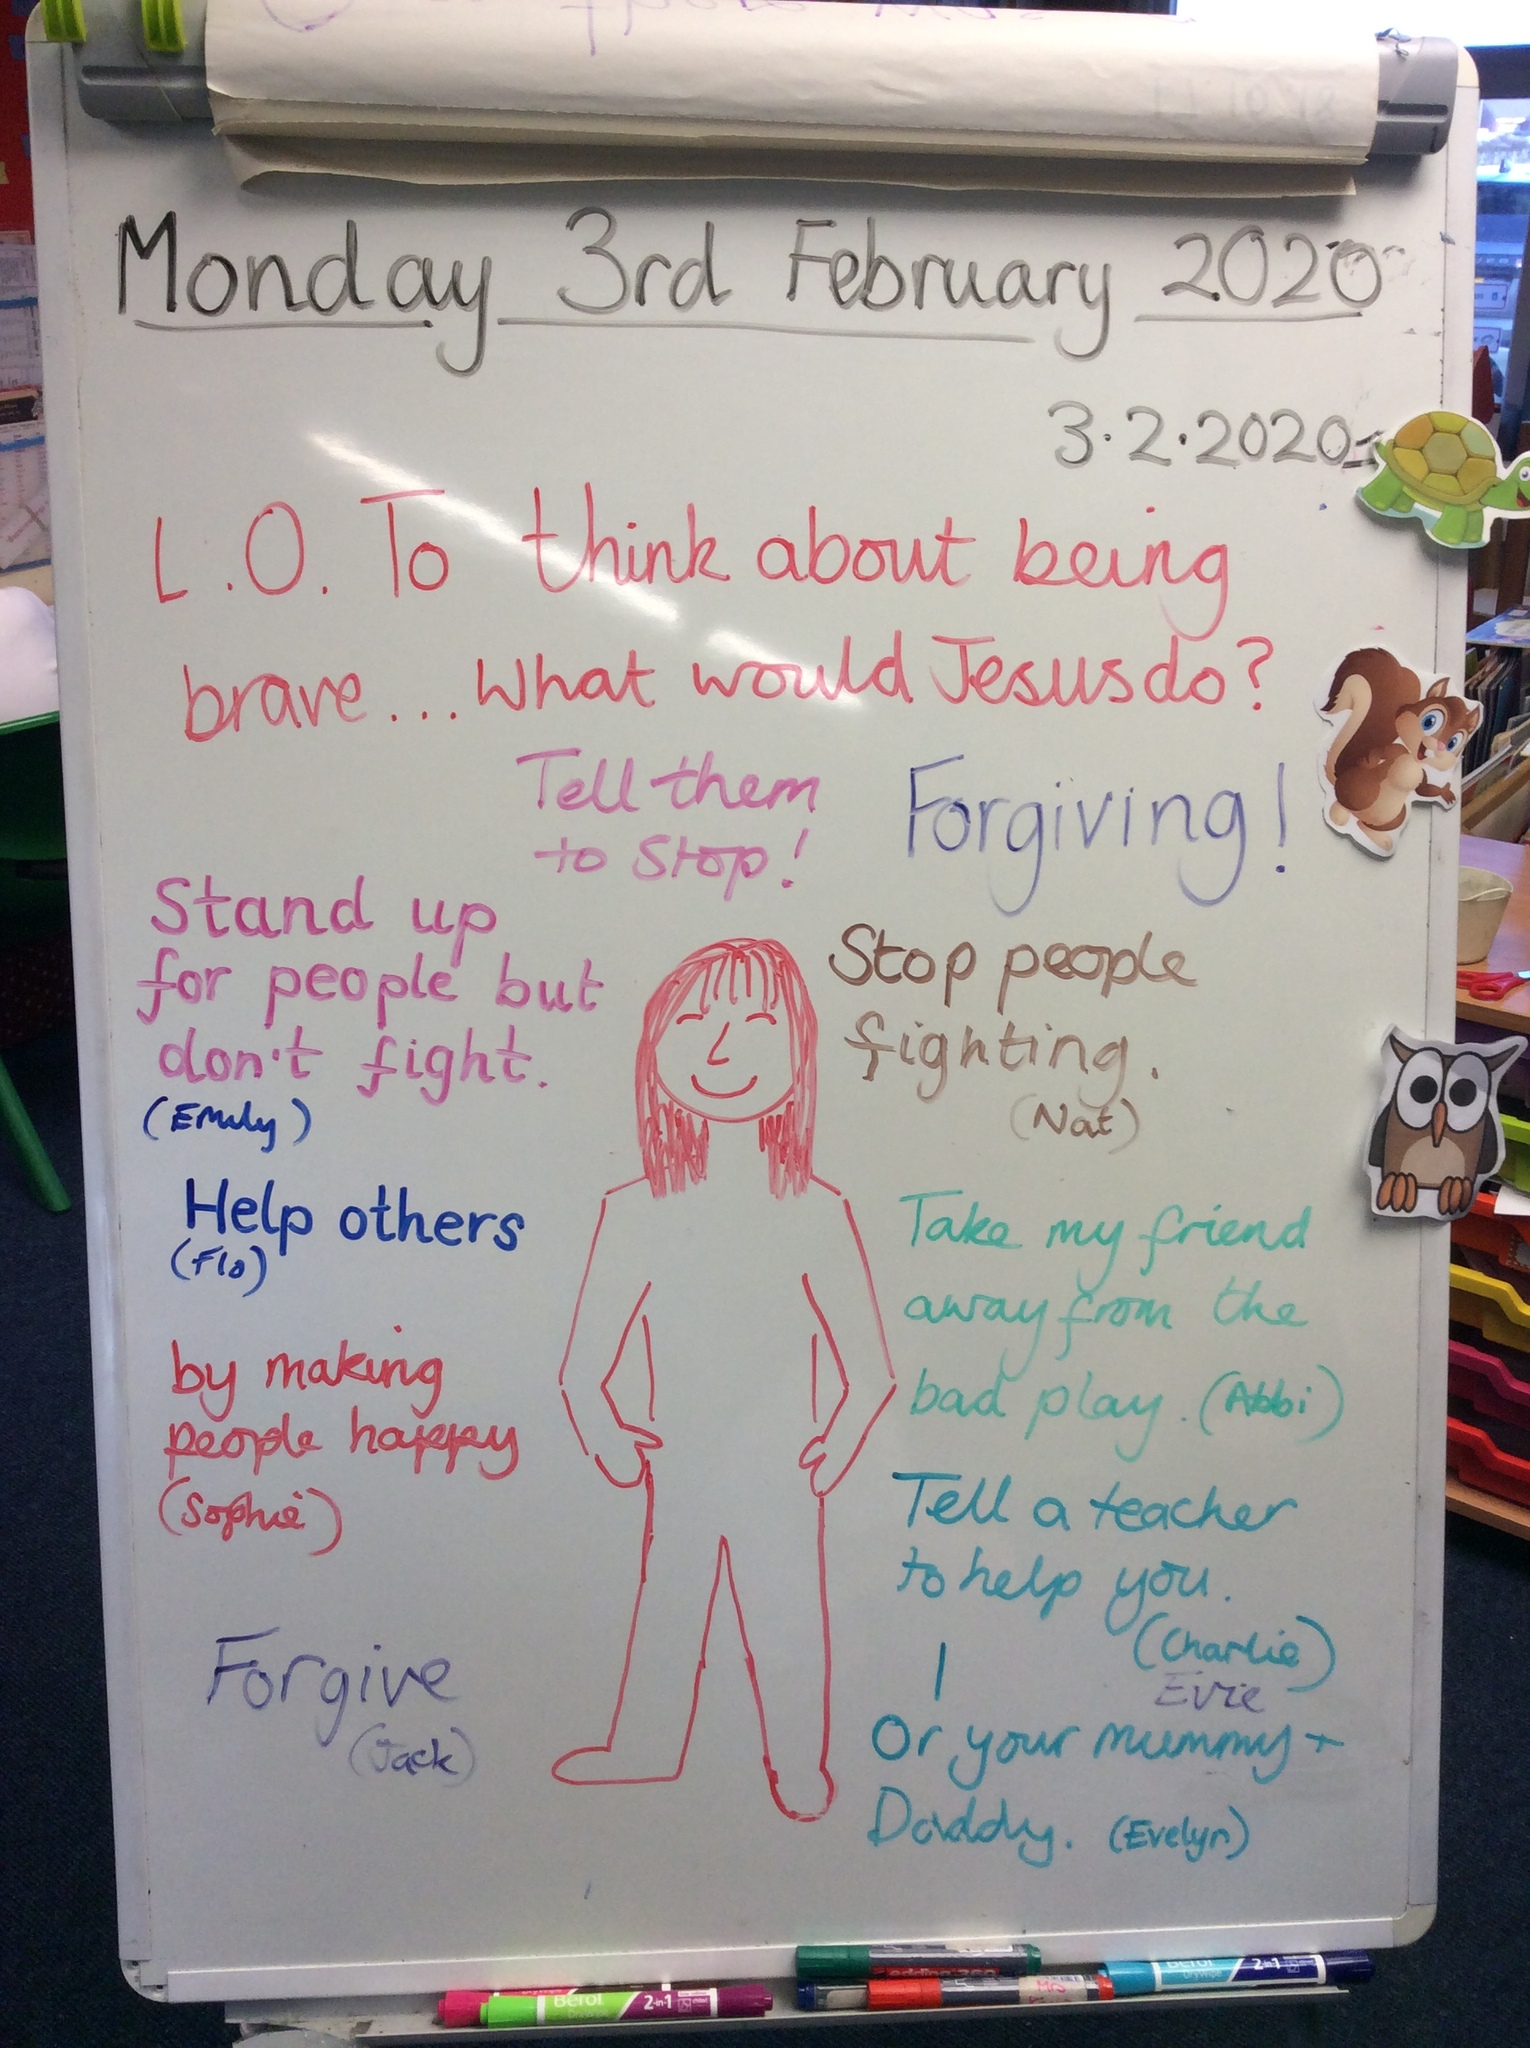 Monday 3rd February 2020
3.2.2020
L.O. To think about being
brave...What would Jesus do?
Tell them
to Stop!
Forgiving!
Stand up
for people but
don't fight.
(Emily)
Stop people
fighting.
(Nat)
Help others
(Flo)
Take my friend
away from the
bad play. (Abbi)
by making
people happy
(Sophie)
Tell a teacher
to help you.
(Charlie)
Evie
Forgive
(Jack)
Or your mummy +
Daddy. (Evelyn)
Berol 2in1
Berol 2in1